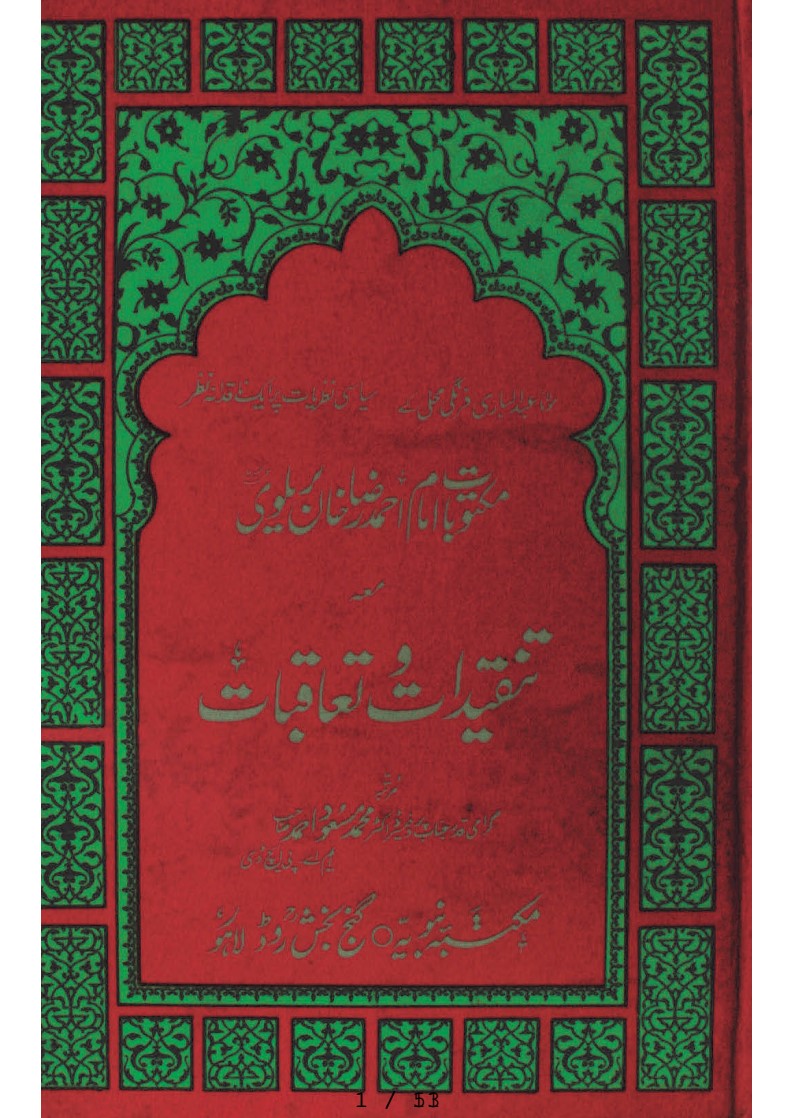 مولانا عبدالباری فرنگی محلی کے سیاسی نظریات پر ایک ناقدانہ نظر
مکتوبات امام احمد رضا خان بریلوی
معہ
تنقیدات و تعاقبات
مرتبہ
گرامی قدر جناب پروفیسر ڈاکٹر محمد مسعود احمد صاحب
ایم اے پی ایچ ڈی
مکتبہ نبویہ ○ گنج بخش روڈ لاہور
1 / 53